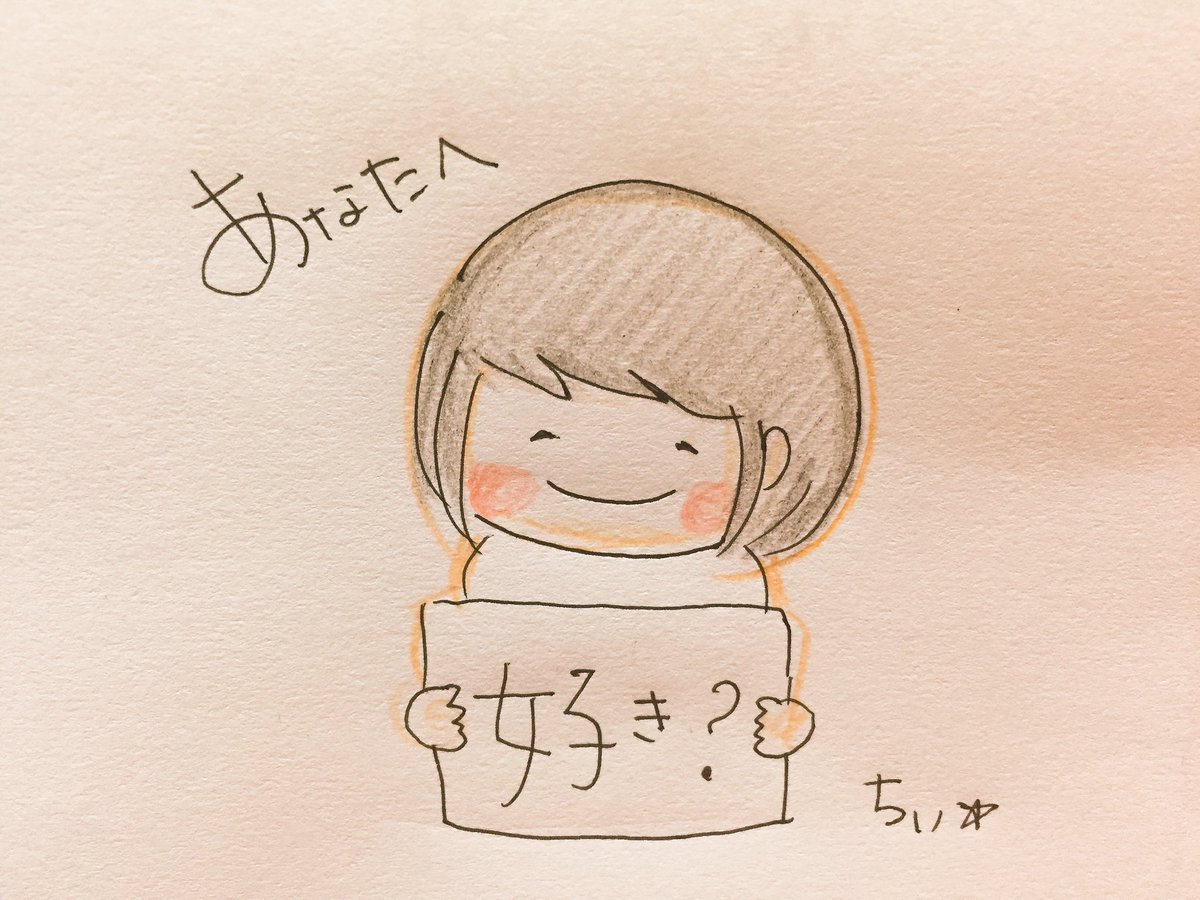 あなたへ
好き?
ちぃ☆